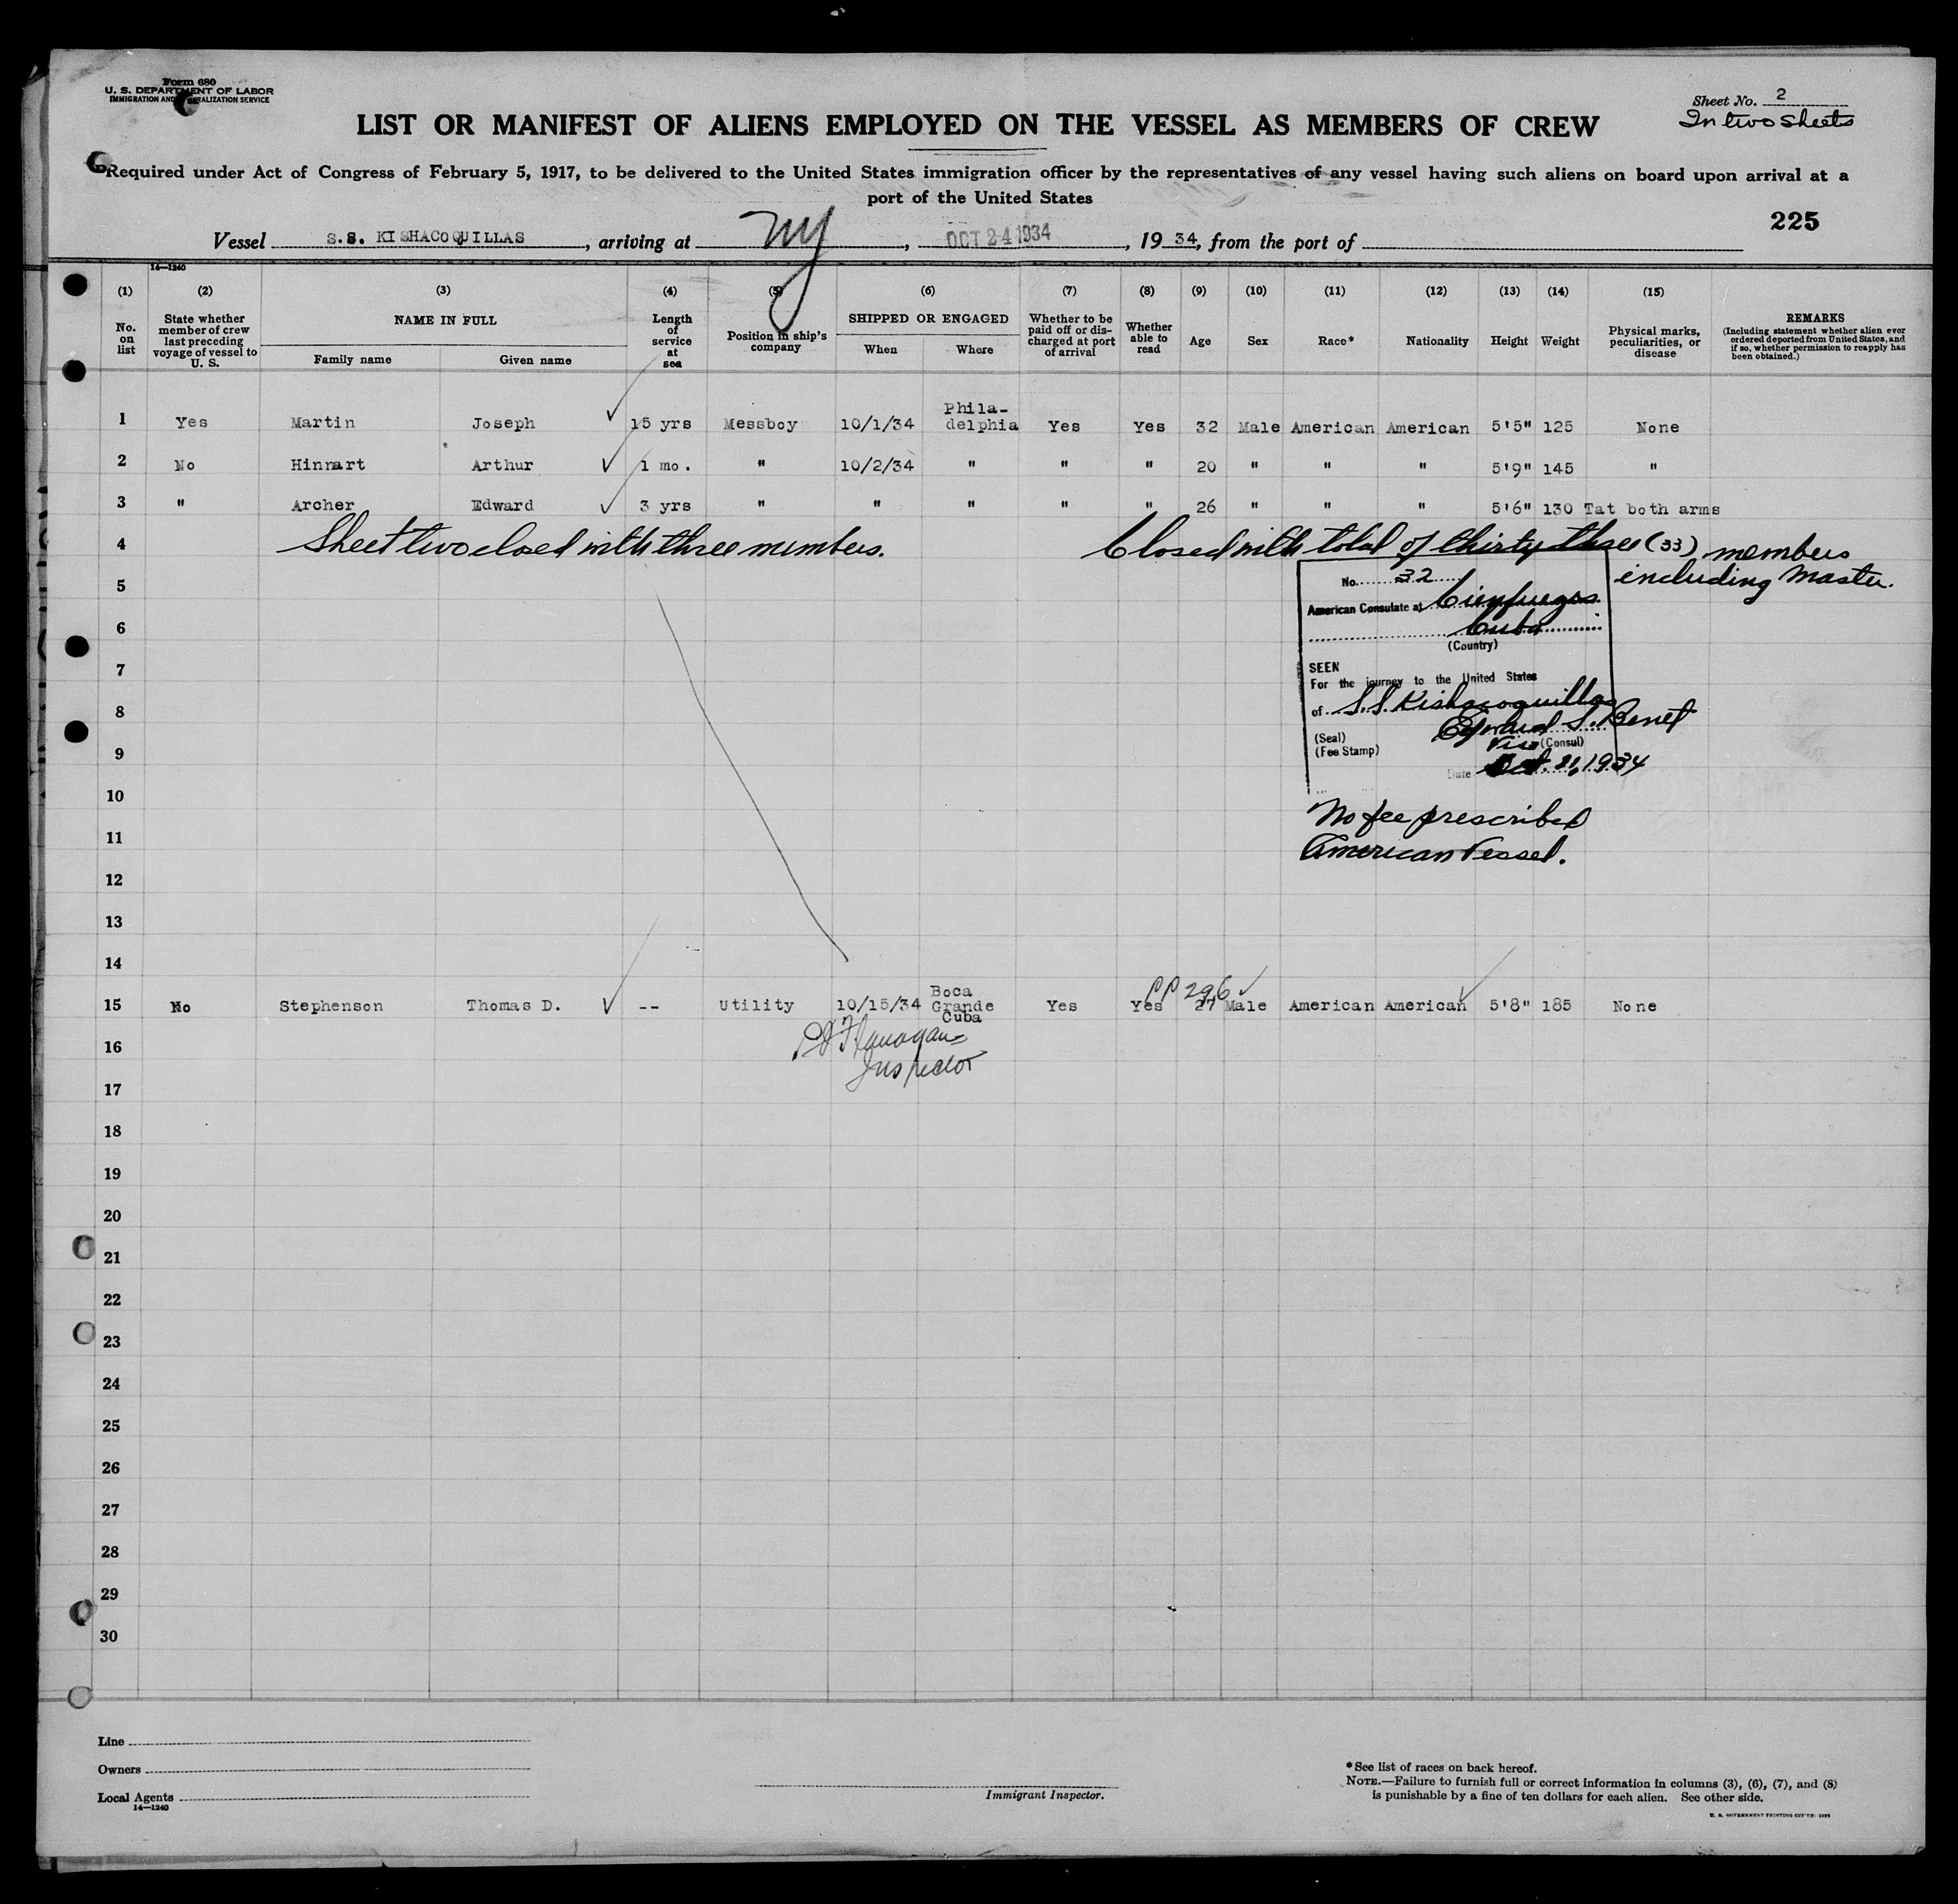 Form 680
U. S. DEPARTMENT OF LABOR
IMMIGRATION AND NATURALIZATION SERVICE
Sheet No. 2
In two sheets
LIST OR MANIFEST OF ALIENS EMPLOYED ON THE VESSEL AS MEMBERS OF CREW
Required under Act of Congress of February 5, 1917, to be delivered to the United States immigration officer by the representatives of any vessel having such aliens on board upon arrival at a
port of the United States
225
Vessel S.S. KISHACOQUILLAS, arriving at NY, OCT 24 1934, 1934, from the port of
14—1240
(1) (2) (3) (4) (5) (6) (7) (8) (9) (10) (11) (12) (13) (14) (15)
No. on list
State whether member of crew last preceding voyage of vessel to U. S.
NAME IN FULL
Family name Given name
Length of service at sea
Position in ship's company
SHIPPED OR ENGAGED
When Where
Whether to be paid off or discharged at port of arrival
Whether able to read
Age
Sex
Race*
Nationality
Height
Weight
Physical marks, peculiarities, or disease
REMARKS
(Including statement whether alien ever ordered deported from United States, and if so, whether permission to reapply has been obtained.)
1 Yes Martin Joseph 15 yrs Messboy 10/1/34 Phila-delphia Yes Yes 32 Male American American 5'5" 125 None
2 No Hinnart Arthur 1 mo. " 10/2/34 " " " 20 " " " 5'9" 145 "
3 " Archer Edward 3 yrs " " " " " 26 " " " 5'6" 130 Tat both arms
4 Sheet two closed with three members. Closed with total of thirty three (33) members
including Master.
5
6
7
8
9
10
11
12
13
14
No. 32
American Consulate at Cienfuegos
Cuba
(Country)
SEEN
For the journey to the United States
of S.S. Kishacoquillas
Edward S. Benet
(Seal) Vice (Consul)
(Fee Stamp)
Date Oct. 21, 1934
No fee prescribed
American Vessel.
PP 296
15 No Stephenson Thomas D. -- Utility 10/15/34 Boca Grande Cuba Yes Yes 27 Male American American 5'8" 185 None
Flanagan
Inspector
16
17
18
19
20
21
22
23
24
25
26
27
28
29
30
Line
Owners
Local Agents
14—1240
Immigrant Inspector.
*See list of races on back hereof.
NOTE.—Failure to furnish full or correct information in columns (3), (6), (7), and (8)
is punishable by a fine of ten dollars for each alien. See other side.
U. S. GOVERNMENT PRINTING OFFICE: